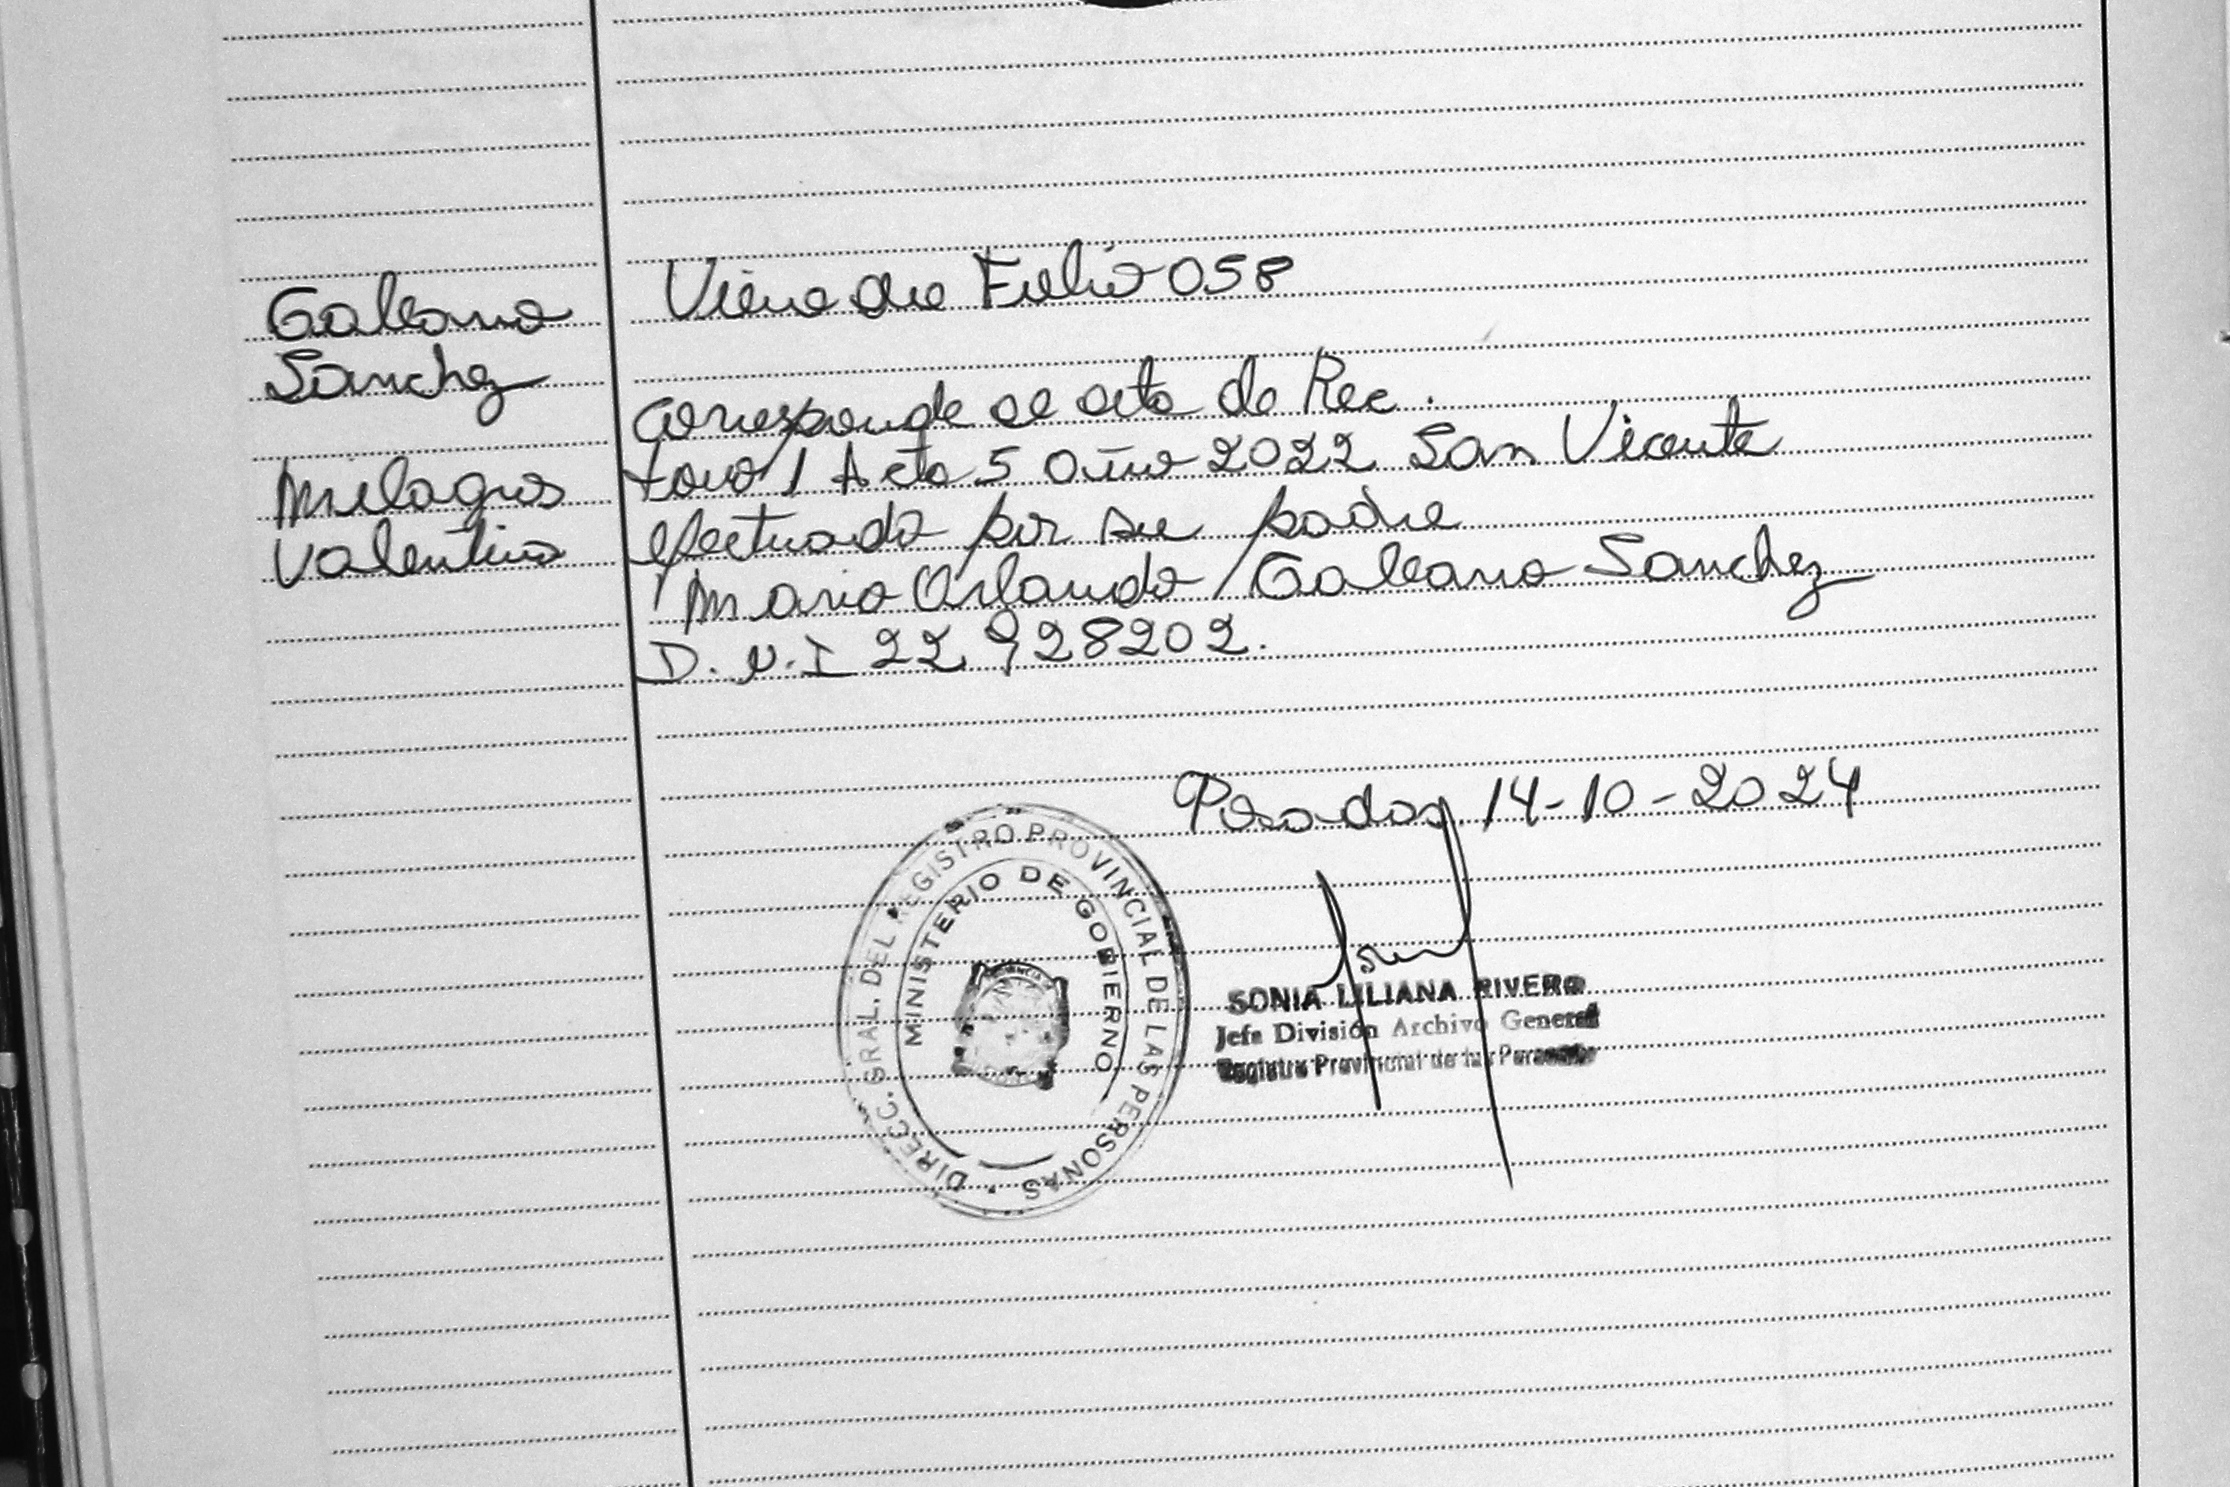 Galeano
Sanchez
Milagros
Valentina
Viene de Folio 058
Corresponde al acta de Rec.
tomo 1 Acta 5 Año 2022 San Vicente
efectuado por su padre
Mario Orlando Galeano Sanchez
D.N.I 22 928202.
Posadas 14-10-2024
DIRECC. GRAL. DEL REGISTRO PROVINCIAL DE LAS PERSONAS
MINISTERIO DE GOBIERNO
SONIA LILIANA RIVERO
Jefa División Archivo General
Registro Provincial de las Personas